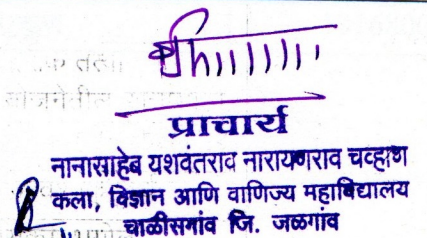 प्राचार्य
नानासाहेब यशवंतराव नारायणराव चव्हाण
कला, विज्ञान आणि वाणिज्य महाविद्यालय
चाळीसगांव जि. जळगांव